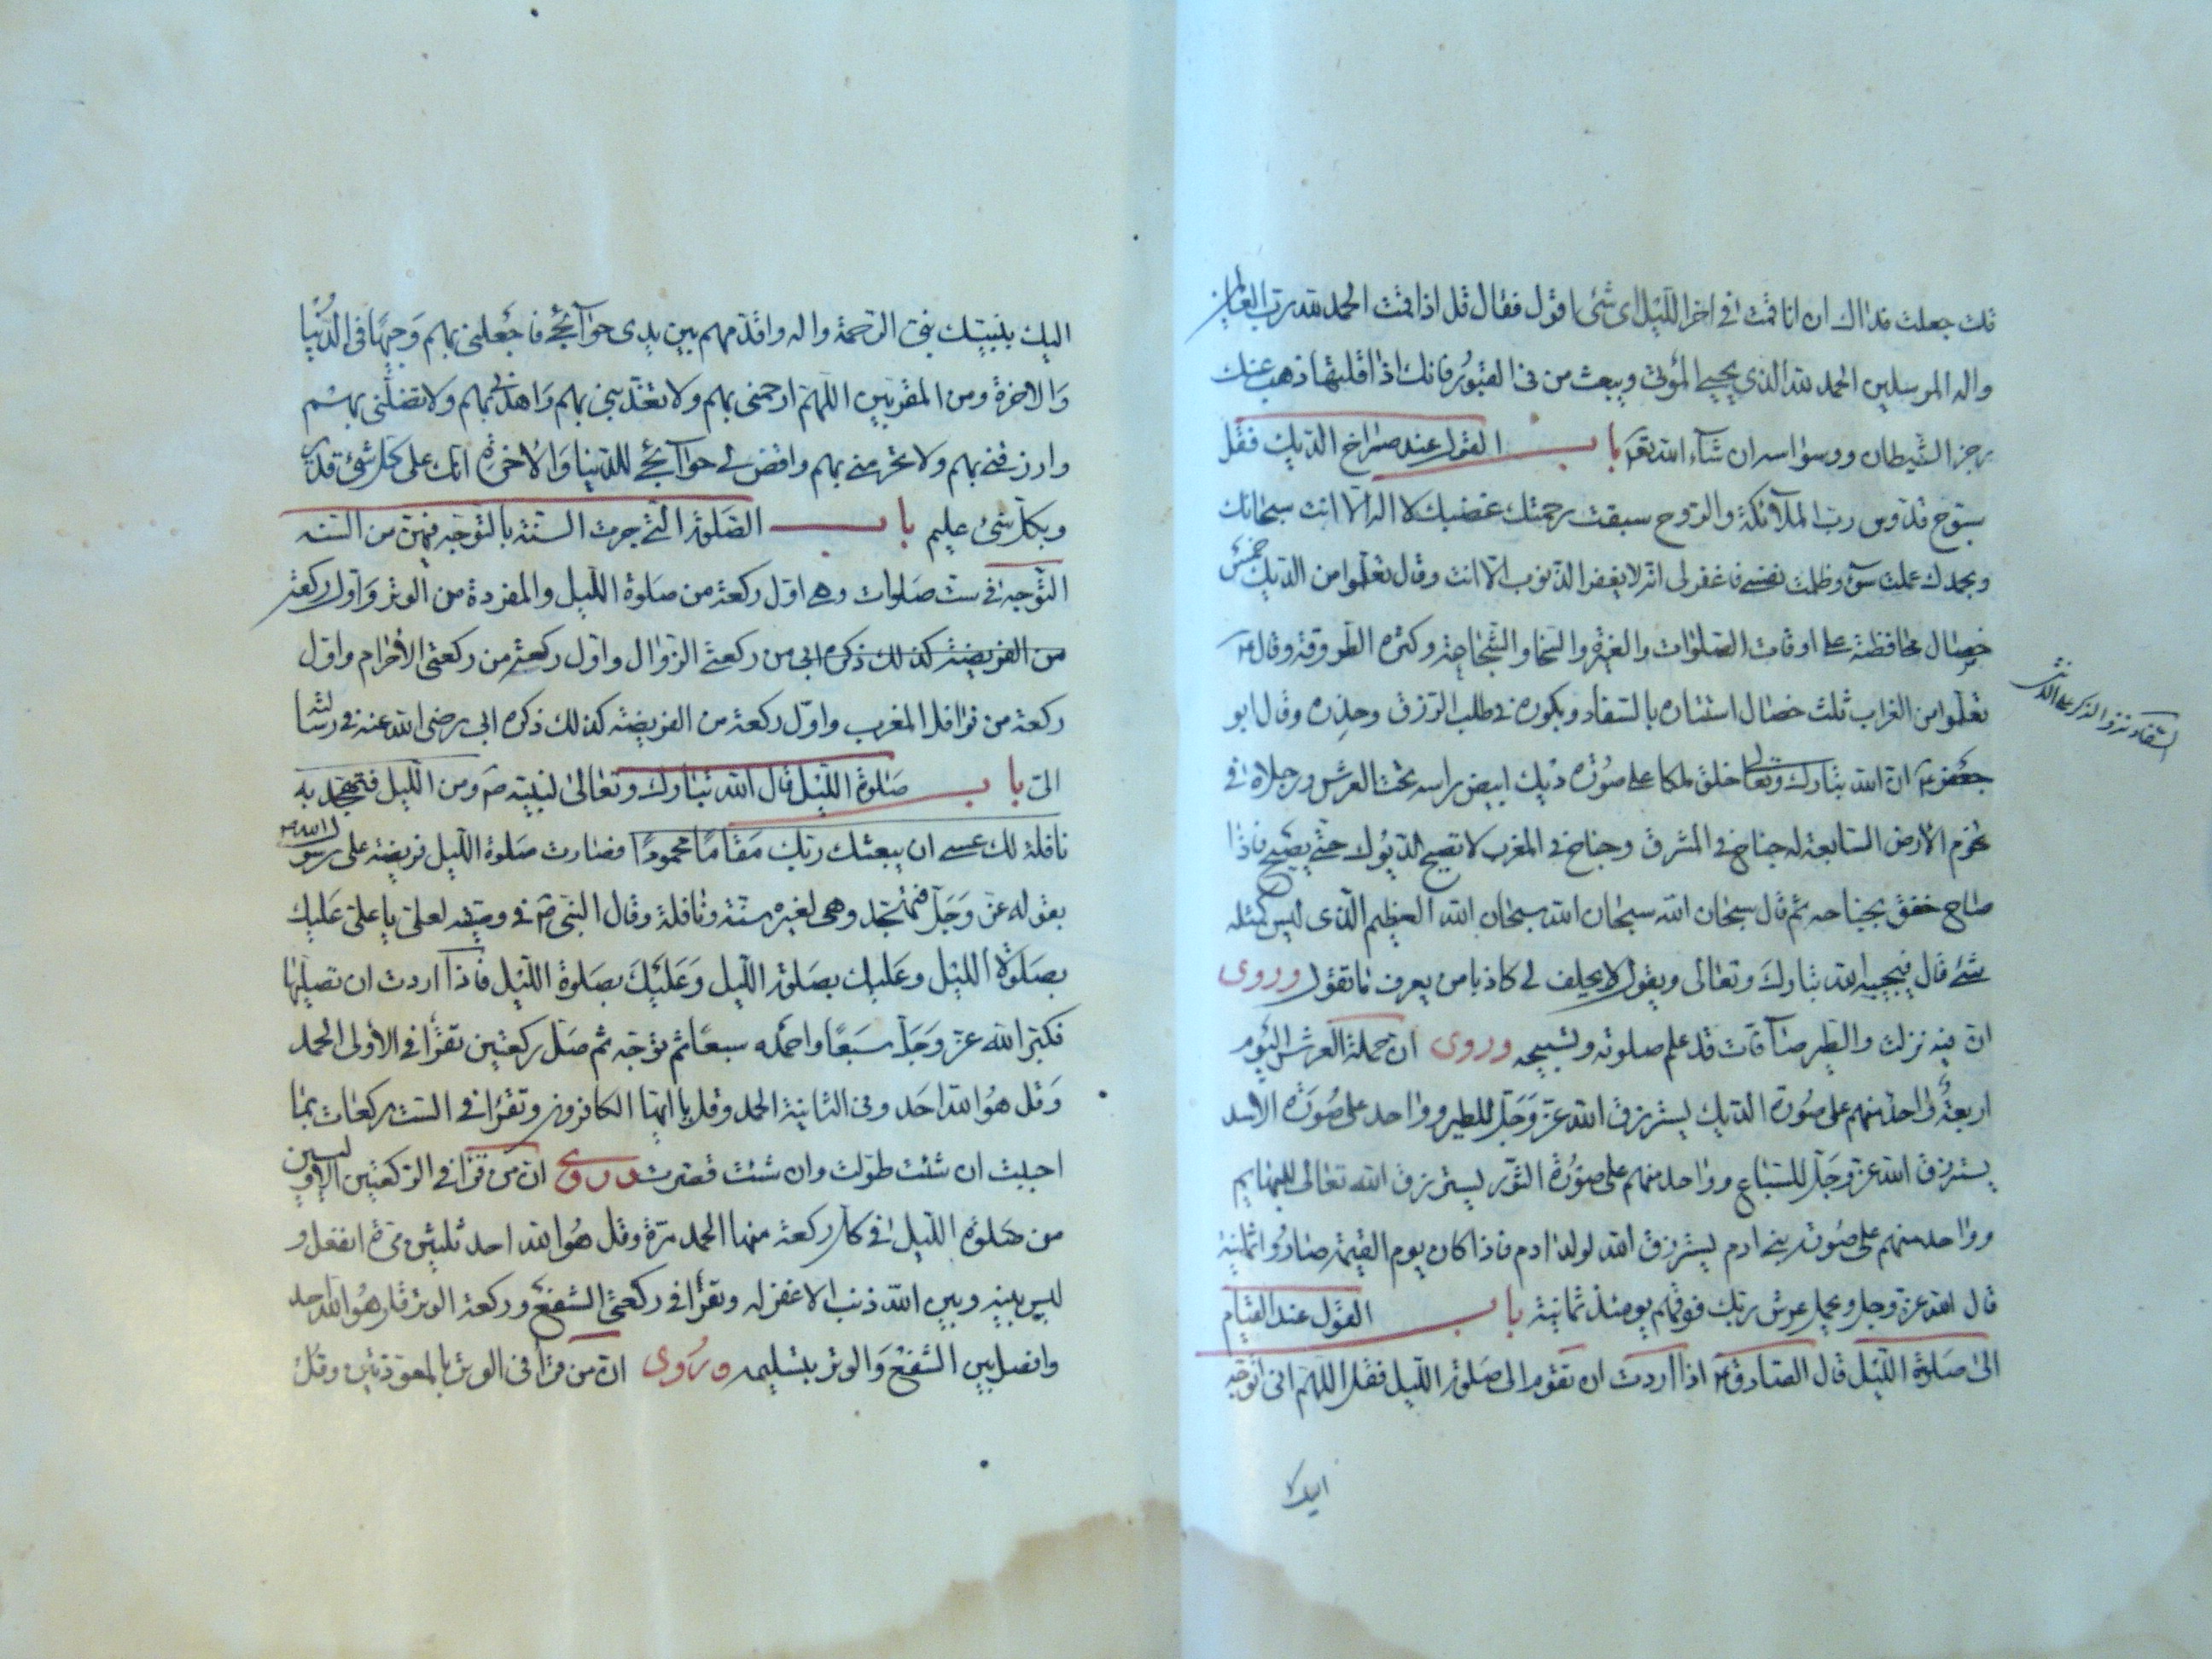 قلت جعلت فداك ان انا قمت في اخر الليل اى شئ اقول فقال قل اذا قمت الحمد لله رب العالمين
واله المرسلين الحمد لله الذى يحيي الموتى ويبعث من فى القبور فانك اذا قلتها ذهب عنك
رجز الشيطان ووسواسه ان شاء الله تعم باب القول عند صراخ الديك فقل
سبوح قدوس رب الملآئكة والروح سبقت رحمتك غضبك لا اله الا انت سبحانك
وبحمدك عملت سوء وظلمت نفسي فاغفر لى انه لا يغفر الذنوب الا انت وقال تعلموا من الديك خمس
خصال محافظته على اوقات الصلوات والغيرة والسخا والشجاعة وكثرة الطروقة وقال ع
تعلموا من الغراب ثلث خصال استتاره بالسفاد وبكوره في طلب الرزق وحذره وقال ابو
السفاد نزو الذكر على الانثى
جعفر ع ان الله تبارك وتعالى خلق ملكا على صورة ديك ابيض راسه تحت العرش ورجلاه في
تخوم الارض السابعة له جناح في المشرق وجناح في المغرب لا تصيح الديوك حتى يصيح فاذا
صاح خفق بجناحه ثم قال سبحان الله سبحان الله سبحان الله العظيم الذى ليس كمثله
شئ قال فيجيبه الله تبارك وتعالى ويقول لا يحلف لي كاذبا من يعرف ما تقول وروى
ان فيه نزلت والطير صآفات قد علم صلوته وتسبيحه وروى ان حملة العرش اليوم
اربعة واحد منهم على صورة الديك يسترزق الله عز وجل للطير وواحد على صورة الاسد
يسترزق الله عز وجل للسباع وواحد منهم على صورة الثور يسترزق الله تعالى للبهايم
وواحد منهم على صورة بني ادم يسترزق الله لولد ادم فاذا كان يوم القيمة صاروا ثمانية
قال الله عز وجل ويحمل عرش ربك فوقهم يومئذ ثمانية باب القول عند القيام
الى صلوة الليل قال الصادق ع اذا اردت ان تقوم الى صلوة الليل فقل اللهم انى اتوجه
اليك
اليك بنبيك نبى الرحمة واله واقدمهم بين يدى حوآئجي فاجعلنى بهم وجيها فى الدنيا
والاخرة ومن المقربين اللهم ارحمنى بهم ولا تعذبني بهم واهدنى بهم ولا تضلنى بهم
وارزقنى بهم ولا تحرمنى بهم واقض لي حوآئجي للدنيا والاخرة انك على كل شئ قدير
وبكل شئ عليم باب الصلوة التى جرت السنة بالتوجه فيهن من السنه
التوجه في ست صلوات وهي اول ركعة من صلوة الليل والمفردة من الوتر واول ركعة
من الفريضة كذلك ذكره ابي من ركعتي الزوال واول ركعة من ركعتي الاحرام واول
ركعة من نوافل المغرب واول ركعة من الفريضه كذلك ذكره ابي رضى الله عنه في رسالته
الى باب صلوة الليل قال الله تبارك وتعالى لنبيه ص ومن الليل فتهجد به
نافلة لك عسى ان يبعثك ربك مقاما محمودا فصارت صلوة الليل فريضه على رسول الله ص
بقوله عز وجل فتهجد وهي لغيره سنة ونافلة وقال النبى ص في وصيته لعلى يا على عليك
بصلوة الليل وعليك بصلوة الليل وعليك بصلوة الليل فاذا اردت ان تصليها
فكبر الله عز وجل سبعا واحمده سبعا ثم توجه ثم صل ركعتين تقرأ في الاولى الحمد
وقل هو الله احد وفى الثانية الحمد وقل يا ايها الكافرون وتقرأ في الست ركعات بما
احببت ان شئت طولت وان شئت قصرت وروى ان من قرأ في الركعتين الاوليين
من صلوة الليل في كل ركعة منها الحمد مرة وقل هو الله احد ثلثين مرة انفتل و
ليس بينه وبين الله ذنب الا غفر له وتقرأ في ركعتى الشفع وركعة الوتر قل هو الله احد
وافصل بين الشفع والوتر بتسليمه وروى ان من قرأ فى الوتر بالمعوذتين وقل